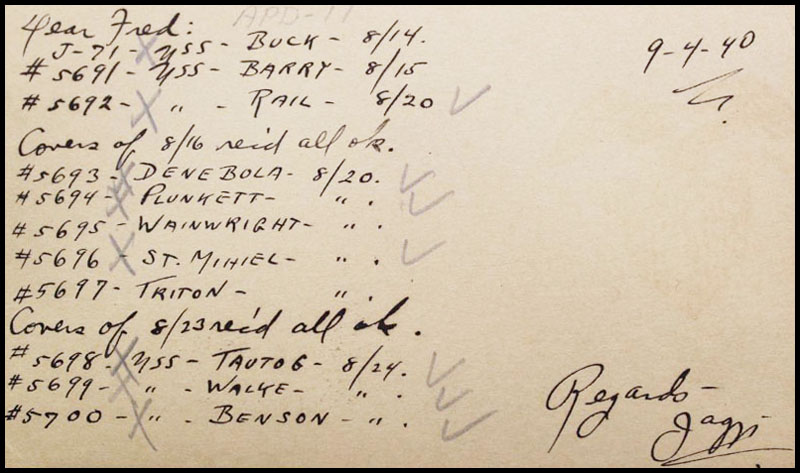 APD-11
Dear Fred:
9-4-40
J-71 X USS - BUCK - 8/14.
#5691 - USS - BARRY - 8/15
#5692 - X " - RAIL - 8/20 ✓
Covers of 8/16 rec'd all ok.
#5693 - X DENEBOLA - 8/20. ✓
#5694 - X PLUNKETT - " . ✓
#5695 - WAINWRIGHT - " .
#5696 - X ST. MIHIEL - " . ✓
#5697 - TRITON - " .
Covers of 8/23 rec'd all ok.
#5698 - X USS - TAUTOG - 8/24. ✓
#5699 - X " - WALKE - " . ✓
#5700 - X " - BENSON - " . ✓
Regards -